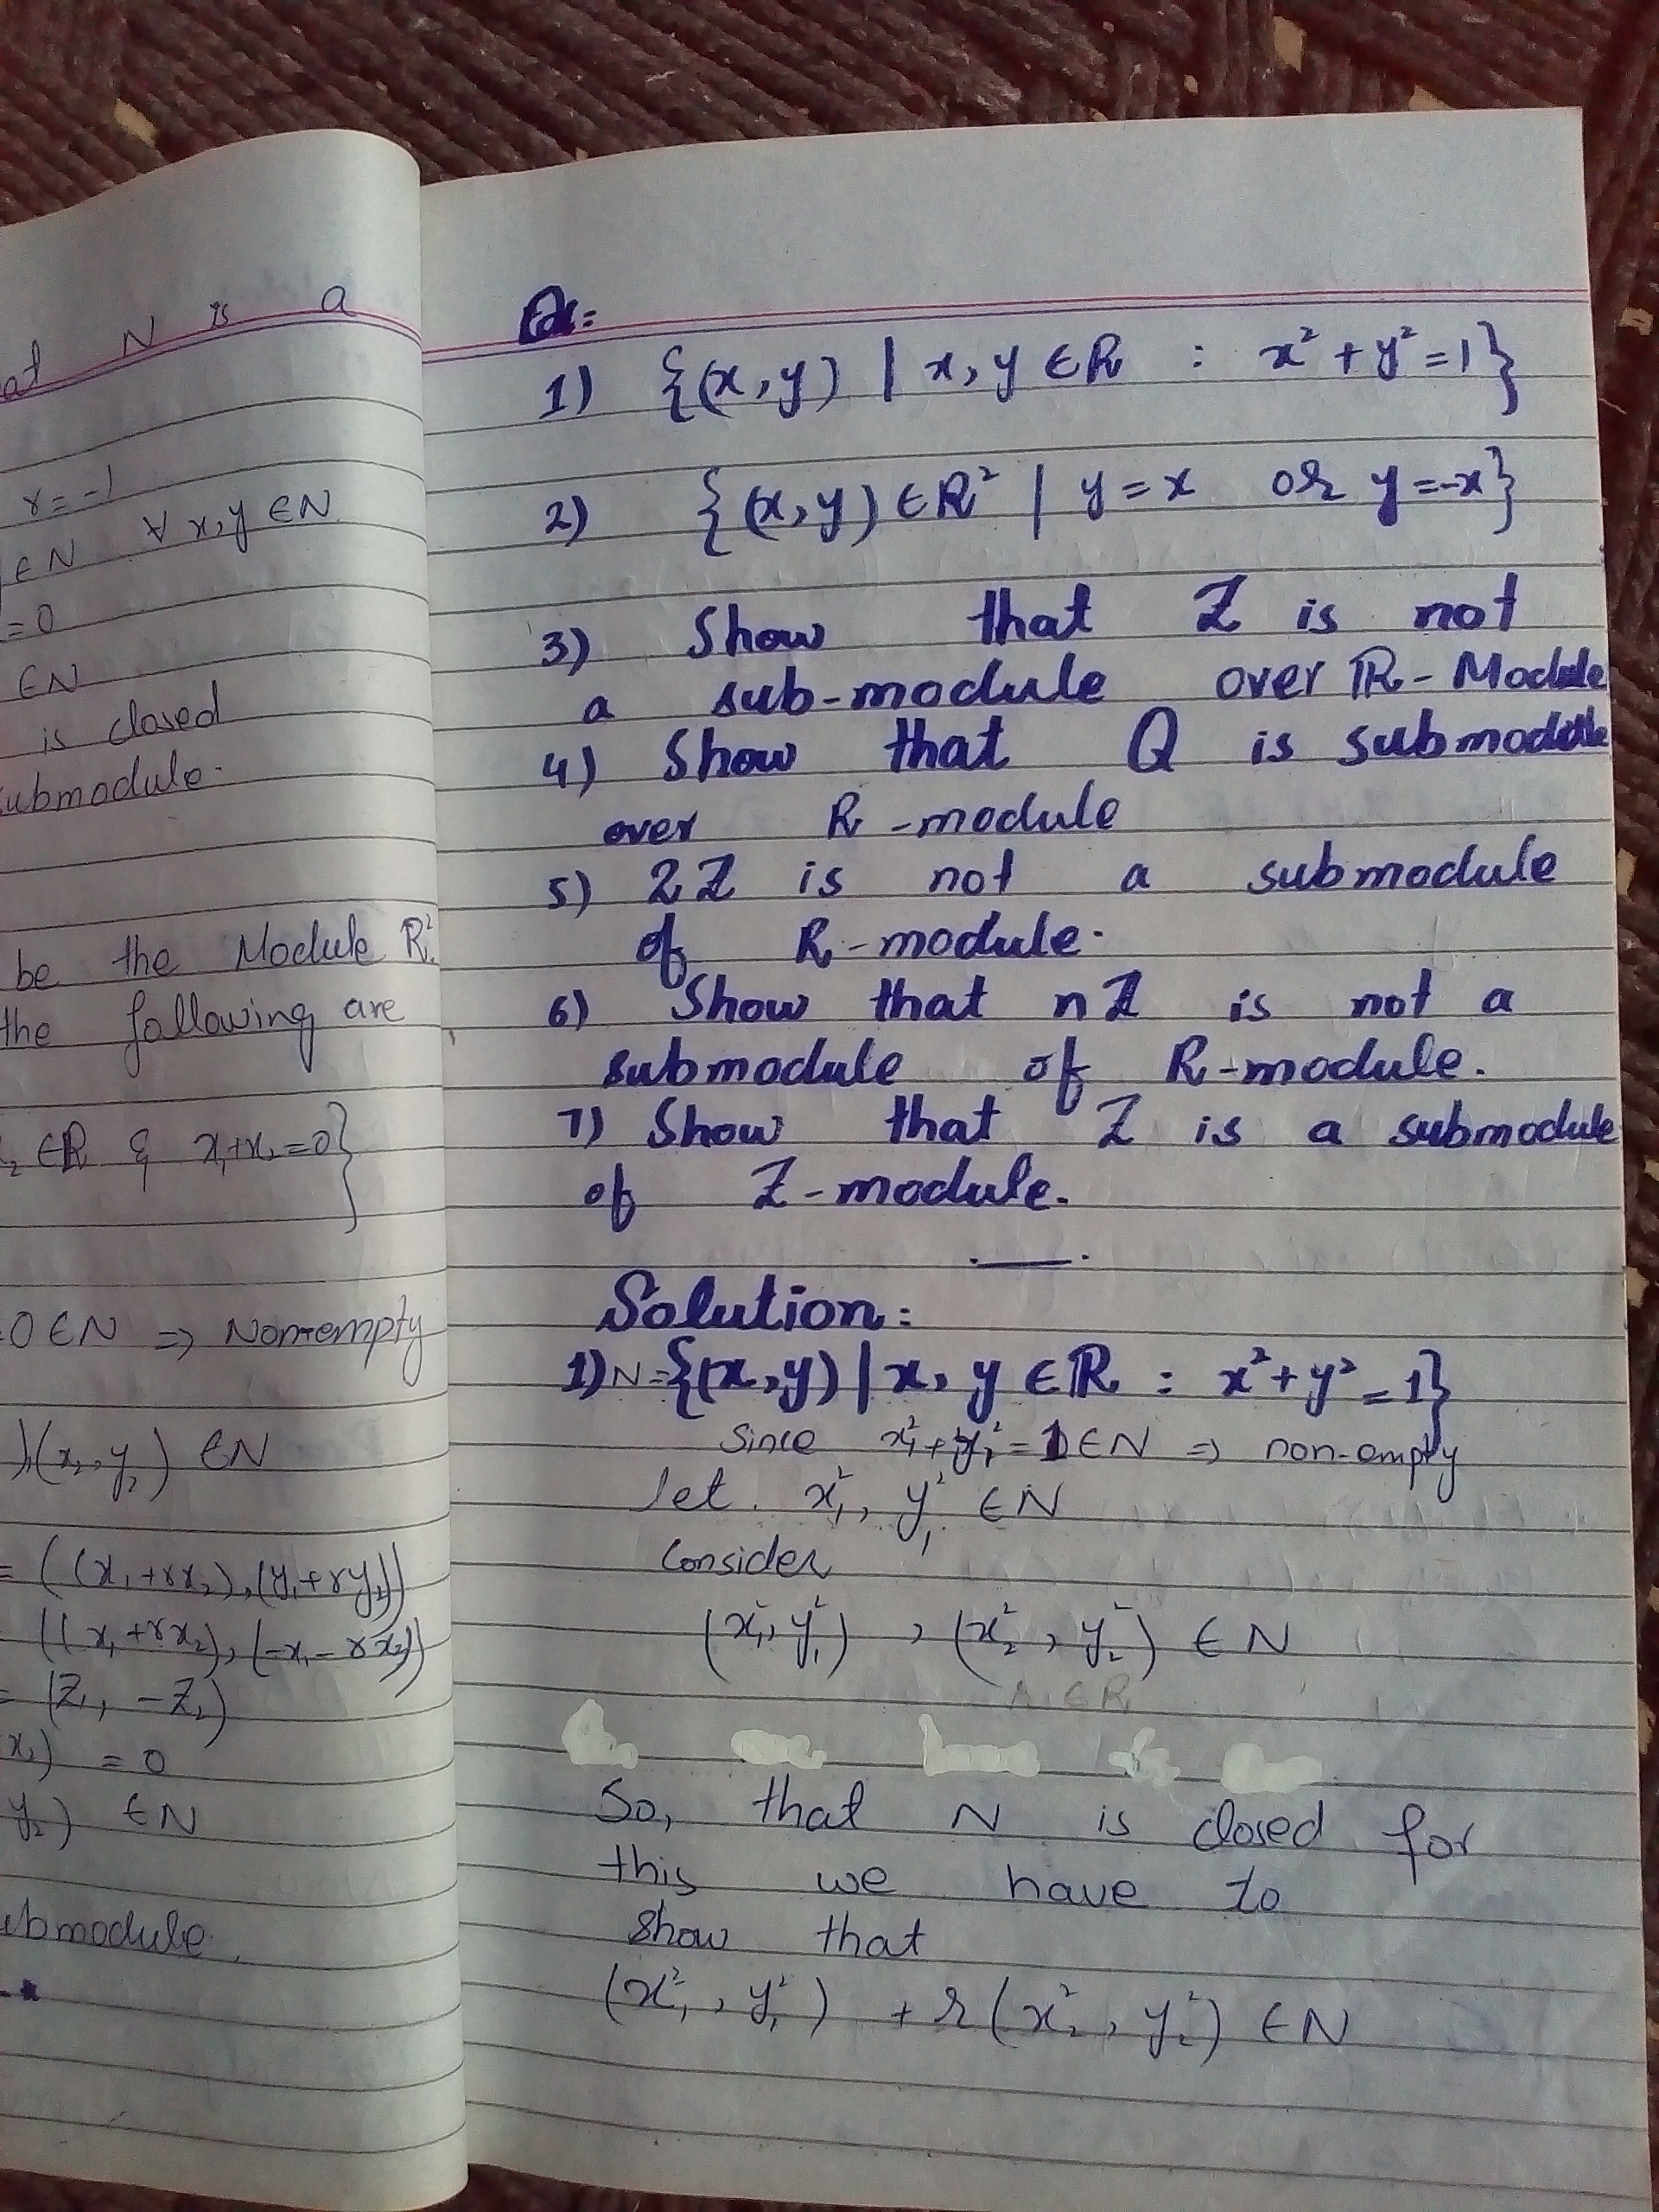 at N is a
r=-1
∀ x,y ∈N
∈N
=0
∈N
is closed
submodule.
be the Module R².
the following are
₂ ∈R & x₁+x₂=0}
0∈N ⇒ Non-empty
),(x₂,y₂) ∈N
= ((x₁+rx₂),(y₁+ry₂))
= ((x₁+rx₂),(-x₁-rx₂))
= (Z₁, -Z₁)
x₂) = 0
y₂) ∈N
submodule.
Ex:
1) {(x,y) | x,y ∈R : x²+y²=1}
2) {(x,y)∈R² | y=x or y=-x}
3) Show that Z is not
a sub-module over R-Module
4) Show that Q is submodule
over R-module
5) 2Z is not a submodule
of R-module.
6) Show that nZ is not a
submodule of R-module.
7) Show that Z is a submodule
of Z-module.
Solution:
1) N={(x,y)|x,y ∈R : x²+y²=1}
Since x₁²+y₁²=1∈N ⇒ non-empty
let. x₁², y₁² ∈N
Consider
(x₁²,y₁²) , (x₂², y₂²) ∈N
∈R
So, that N is closed for
this we have to
show that
(x₁², y₁²) + r(x₂², y₂²) ∈N